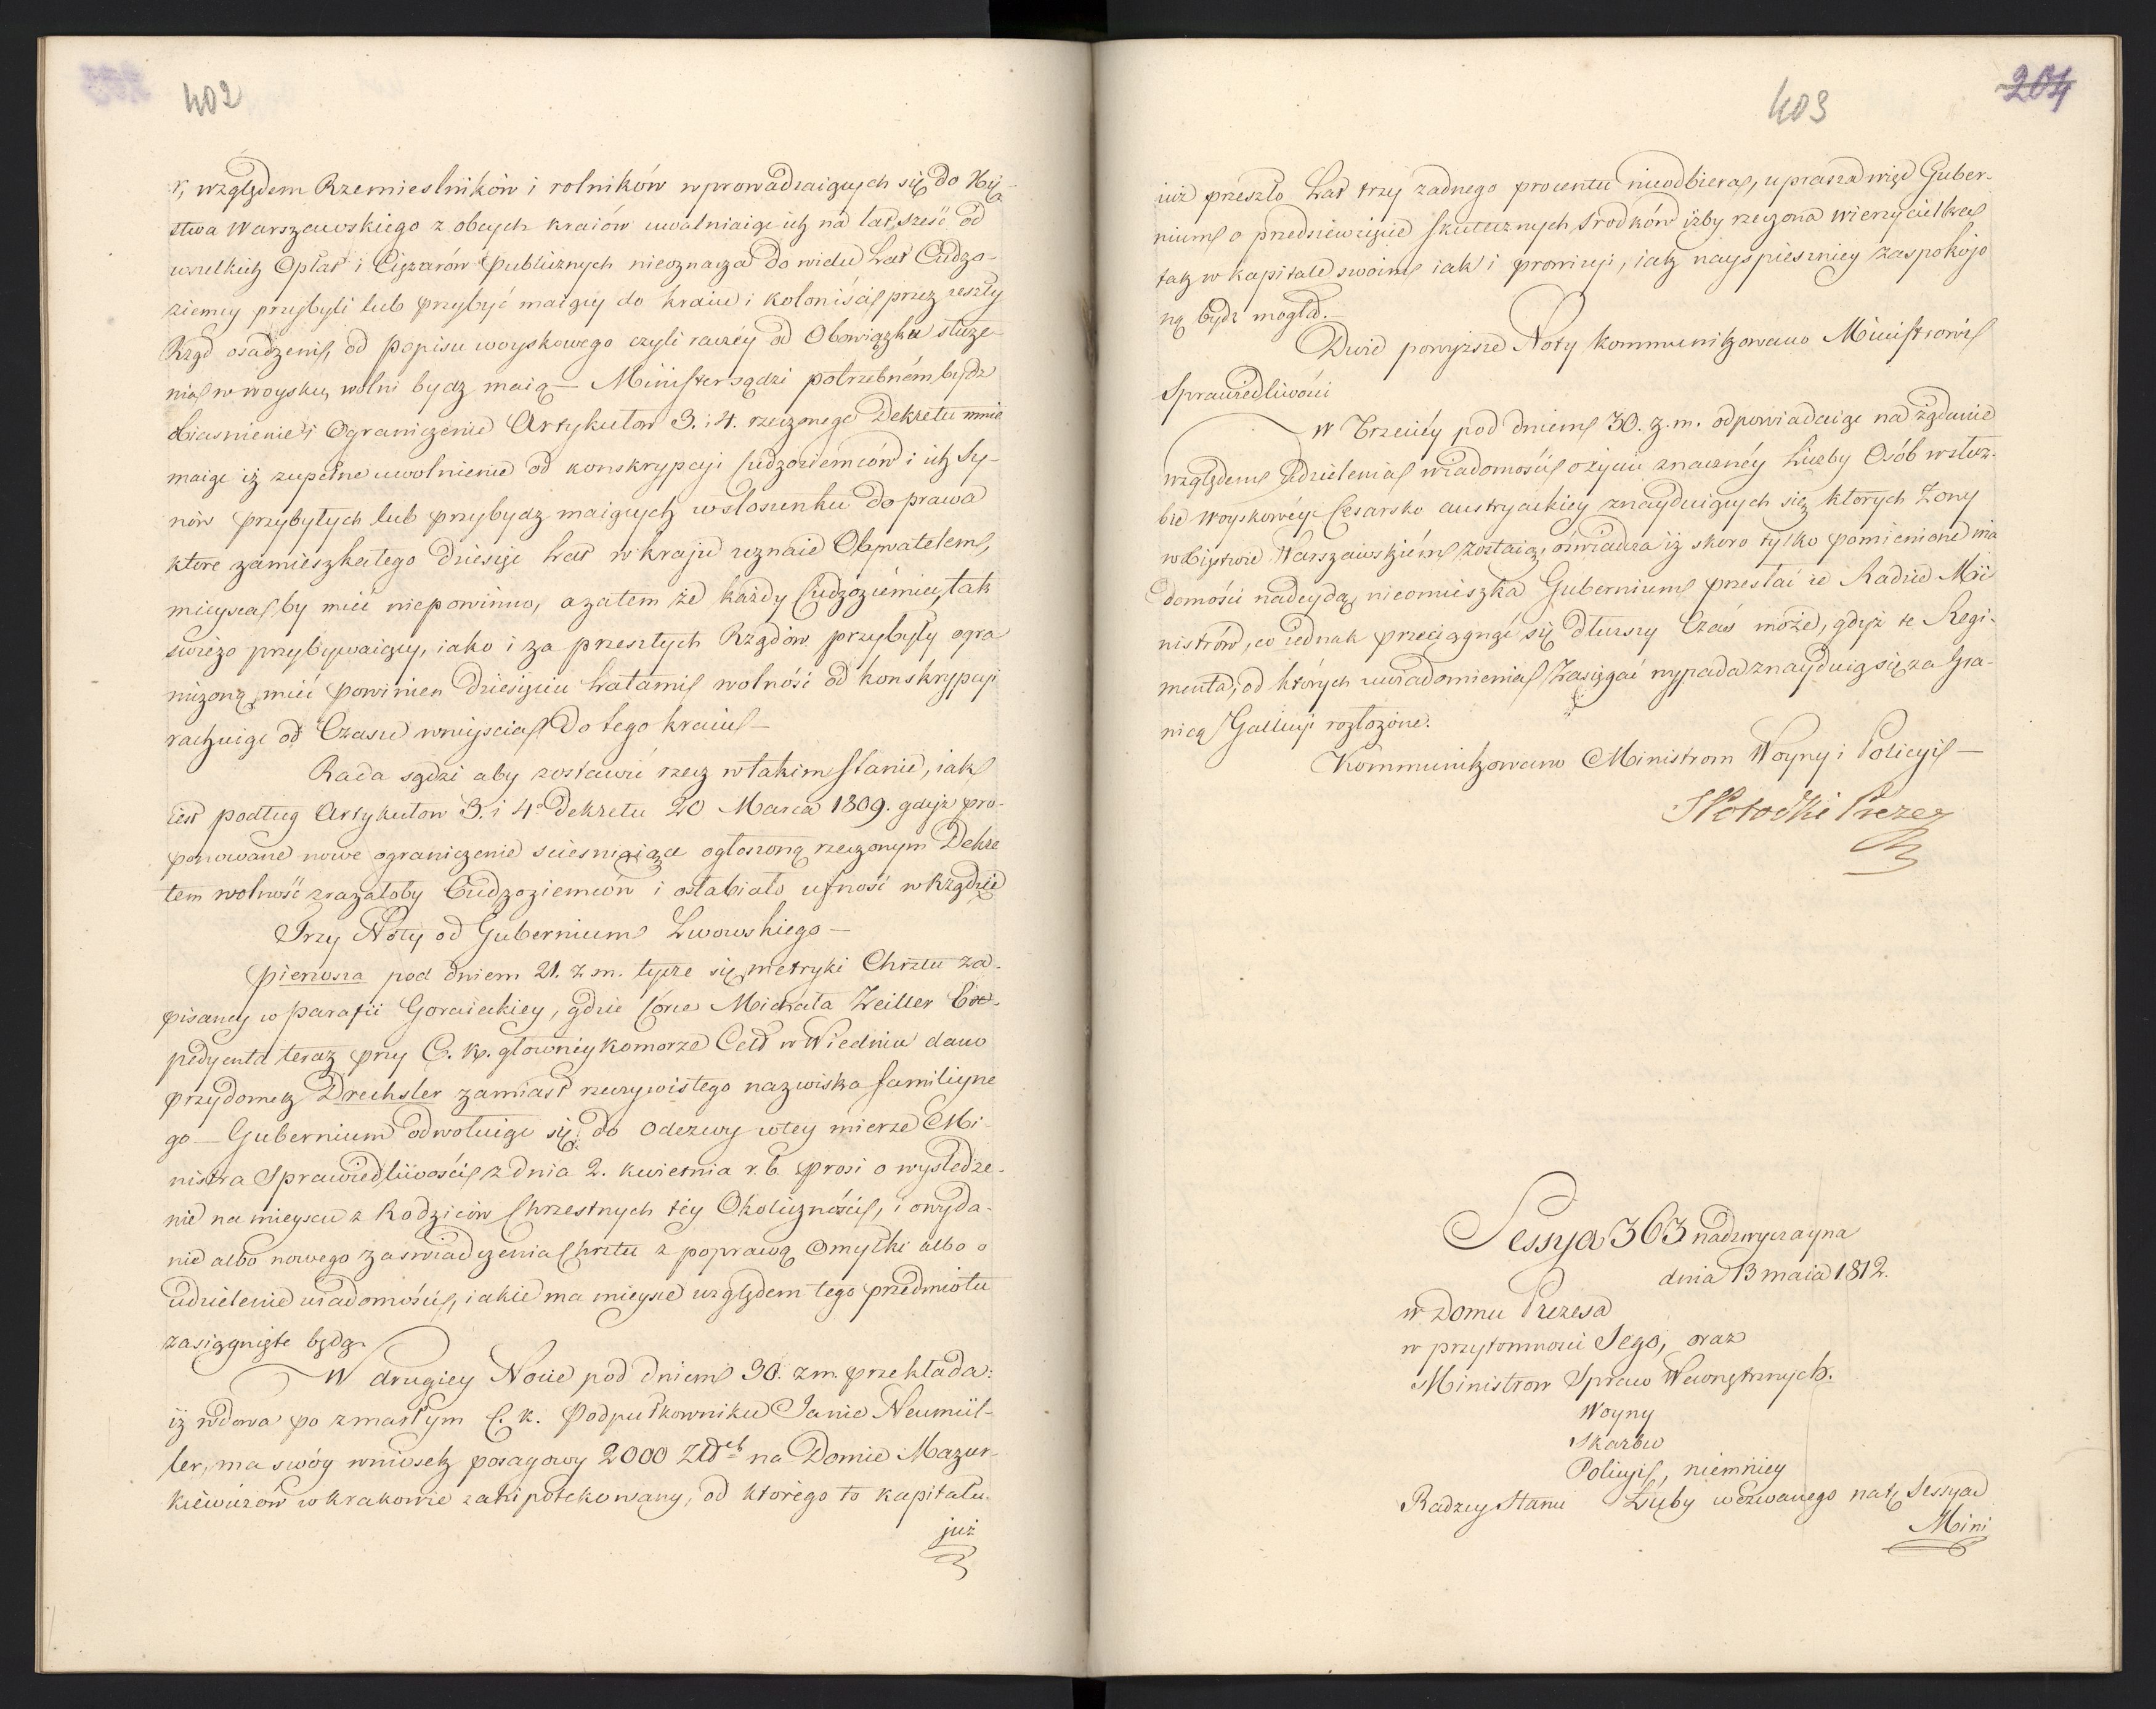 402
r, względem Rzemieslników i rolników wprowadzaiących się do Xię-
stwa Warszawskiego z obcych kraiów uwalniaiąc ich na lat sześć od
wszelkich Opłat i Ciężarów publicznych nieoznacza do wielu Lat Cudzo-
ziemcy przybyli lub przybyć maiący do kraiu i koloniści przez zeszły
Rząd osadzeni, od popisu woyskowego czyli raczéy od Obowiązku służe-
nia w woysku, wolni bydz maią — Minister sądzi potrzebném bydz
obiasnienie i Ograniczenie Artykułow 3. i 4. rzeczonego Dekretu mnie
maiąc iż zupełne uwolnienie od konskrypcyi Cudzoziemców i ich Sy-
nów przybyłych lub przybydz maiących w stosunku do prawa
ktore zamieszkałego dziesięć Lat w kraju uznaie Obywatelem,
mieysca by mieć niepowinno, a zatem że każdy Cudzoziémiec, tak
swieżo przybywaiący, iako i za przeszłych Rządów przybyły ogra
niczoną mieć powinien dziesięciu Latami wolność od konskrypcyi
rachuiąc od Czasu wniyscia do tego kraiu —
Rada sądzi aby zostawić rzecz w takim stanie, iak
iest podług Artykułow 3. i 4. Dekretu 20 Marca 1809. gdyż pro-
ponowane nowe ograniczenie sciesniaiące ogłoszoną rzeczonym Dekre
tem wolność zrażałoby Cudzoziemców i osłabiało ufność w Rządzie
Trzy Noty od Gubernium Lwowskiego —
pierwsza pod dniem 21. z. m. tycze się metryki Chrztu za-
pisaney w parafii Goraieckiey, gdzie Córce Michała Zeiller Ex-
pedyenta teraz przy C. K. głowney komorze Ceł w Wiedniu dano
przydomek Drechsler zamiast rzeczywistego nazwiska familiyne
go — Gubernium odwołuiąc się do Odezwy w tey mierze Mi-
nistra Sprawiedliwości z dnia 2. kwietnia r. b. prosi o wysledze-
nie na mieyscu z Rodziców Chrzestnych téy Okoliczności, i o wyda-
nie albo nowego zaswiadczenia Chrztu z poprawą Omyłki albo o
udzielenie wiadomości, iakie ma mieysce względem tego przedmiotu
zasiągnięte będą.
W drugiey Nocie pod dniem 30. z. m. przekłada:
iż wdowa po zmarłym C. K. Podpułkowniku Janie Neumül-
ler, ma swóy wniosek posagowy 2000 Złch na Domie Mazur-
kiéwiczów w Krakowie zahipotekowany, od ktorégo to kapitału
już
403
204
iuż przeszło Lat trzy żadnego procentu nieodbiera, uprasza więc Guber-
nium o przedsiewzięcie skutecznych srodków iżby rzeczona wierzycielka
tak w kapitale swoim iak i prowizyi, iak nayspieszniey zaspokojo
ną bydź mogła.—
Dwie powyższe Noty kommunikowano Ministrowi
Sprawiedliwości
W Trzeciéy pod dniem 30. z. m. odpowiadaiąc na żądanie
względem udzielenia wiadomości o życiu znacznéy Liczby Osób w służ-
bie Woyskowéy Cesarsko austryackiey znayduiących się, ktorych Żony
w Xięstwie Warszawskiém zostaią, oświadcza iż skoro tylko pomienione wia
domości nadeydą nieomieszka Gubernium przesłać ie Radzie Mi
nistrów, co iednak przeciągnąć się dłuższy Czas może, gdyż te Regi-
menta, od których uwiadomienia Zasięgać wypada znayduią się za Gra-
nicą Gallicyi rozłożone.
Kommunikowano Ministrom Woyny i Policyi —
SPotocki Prezes
Sessya 363 nadzwyczayna
dnia 13 maia 1812.
w Domu Prezesa
w przytomności Jego, oraz
Ministrow Spraw Wewnętrznych.
Woyny
Skarbu
Policyi, niemniey
Radzcy Stanu Łuby wezwanego na tę Sessyą
Mini